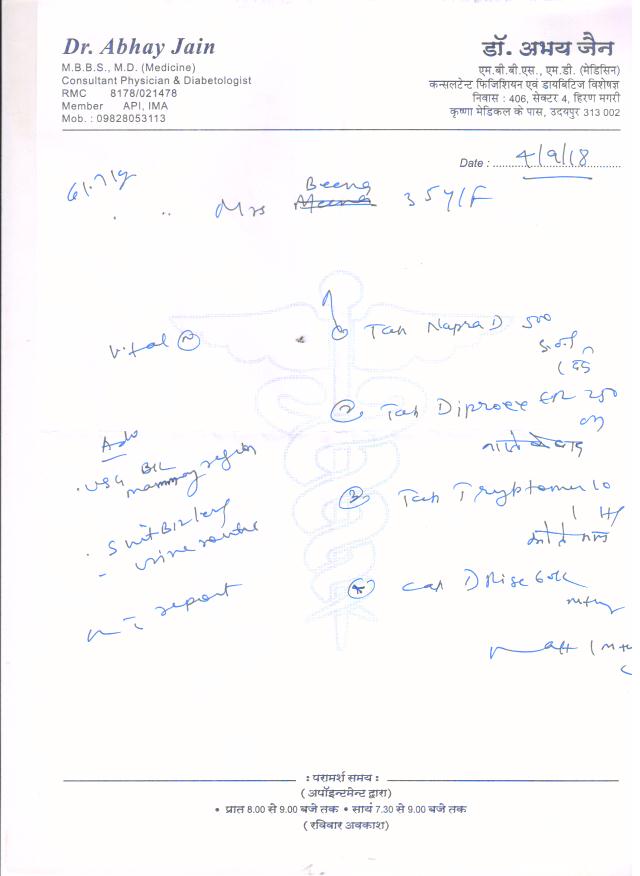 Dr. Abhay Jain
M.B.B.S., M.D. (Medicine)
Consultant Physician & Diabetologist
RMC 8178/021478
Member API, IMA
Mob. : 09828053113
डॉ. अभय जैन
एम.बी.बी.एस., एम.डी. (मेडिसिन)
कन्सलटेन्ट फिजिशियन एवं डायबिटिज विशेषज्ञ
निवास : 406, सेक्टर 4, हिरण मगरी
कृष्णा मेडिकल के पास, उदयपुर 313 002
Date : 4/9/18
Mrs Beena 35Y/F
Vital
① Tab Napra D 500
② Tab Diproex ER 250
Adv
USG B/L
mammary region
③ Tab Tryptomer 10
1 H
S Vit B12 level
urine routine
④ Cap D Rise 60K
report
: परामर्श समय :
( अपॉइन्टमेन्ट द्वारा )
• प्रात 8.00 से 9.00 बजे तक • सायं 7.30 से 9.00 बजे तक
( रविवार अवकाश )